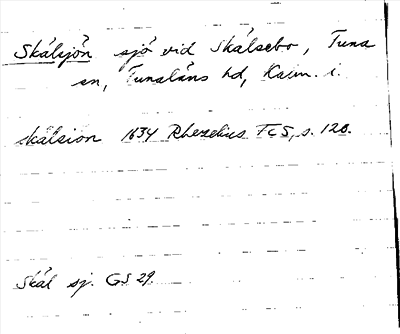 Skålsjön sjö vid Skålsebo, Tuna
sn, Tunaläns hd, Kalm. i.
skålsion 1634 Rhezelius FCS, s. 128.
Skål sj. GS 29.